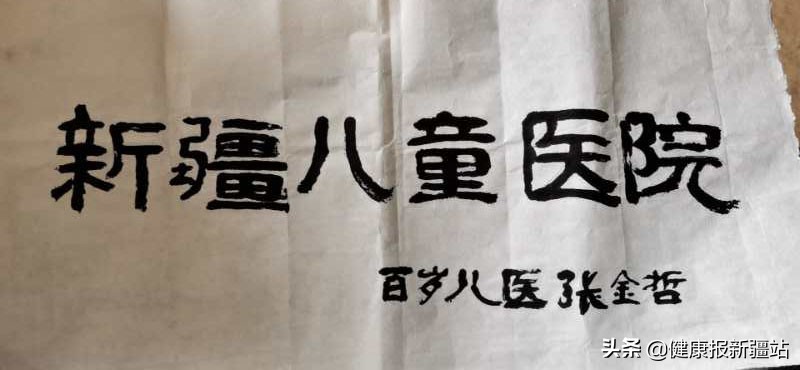 新疆儿童医院
百岁儿医张金哲
头条 @健康报新疆站